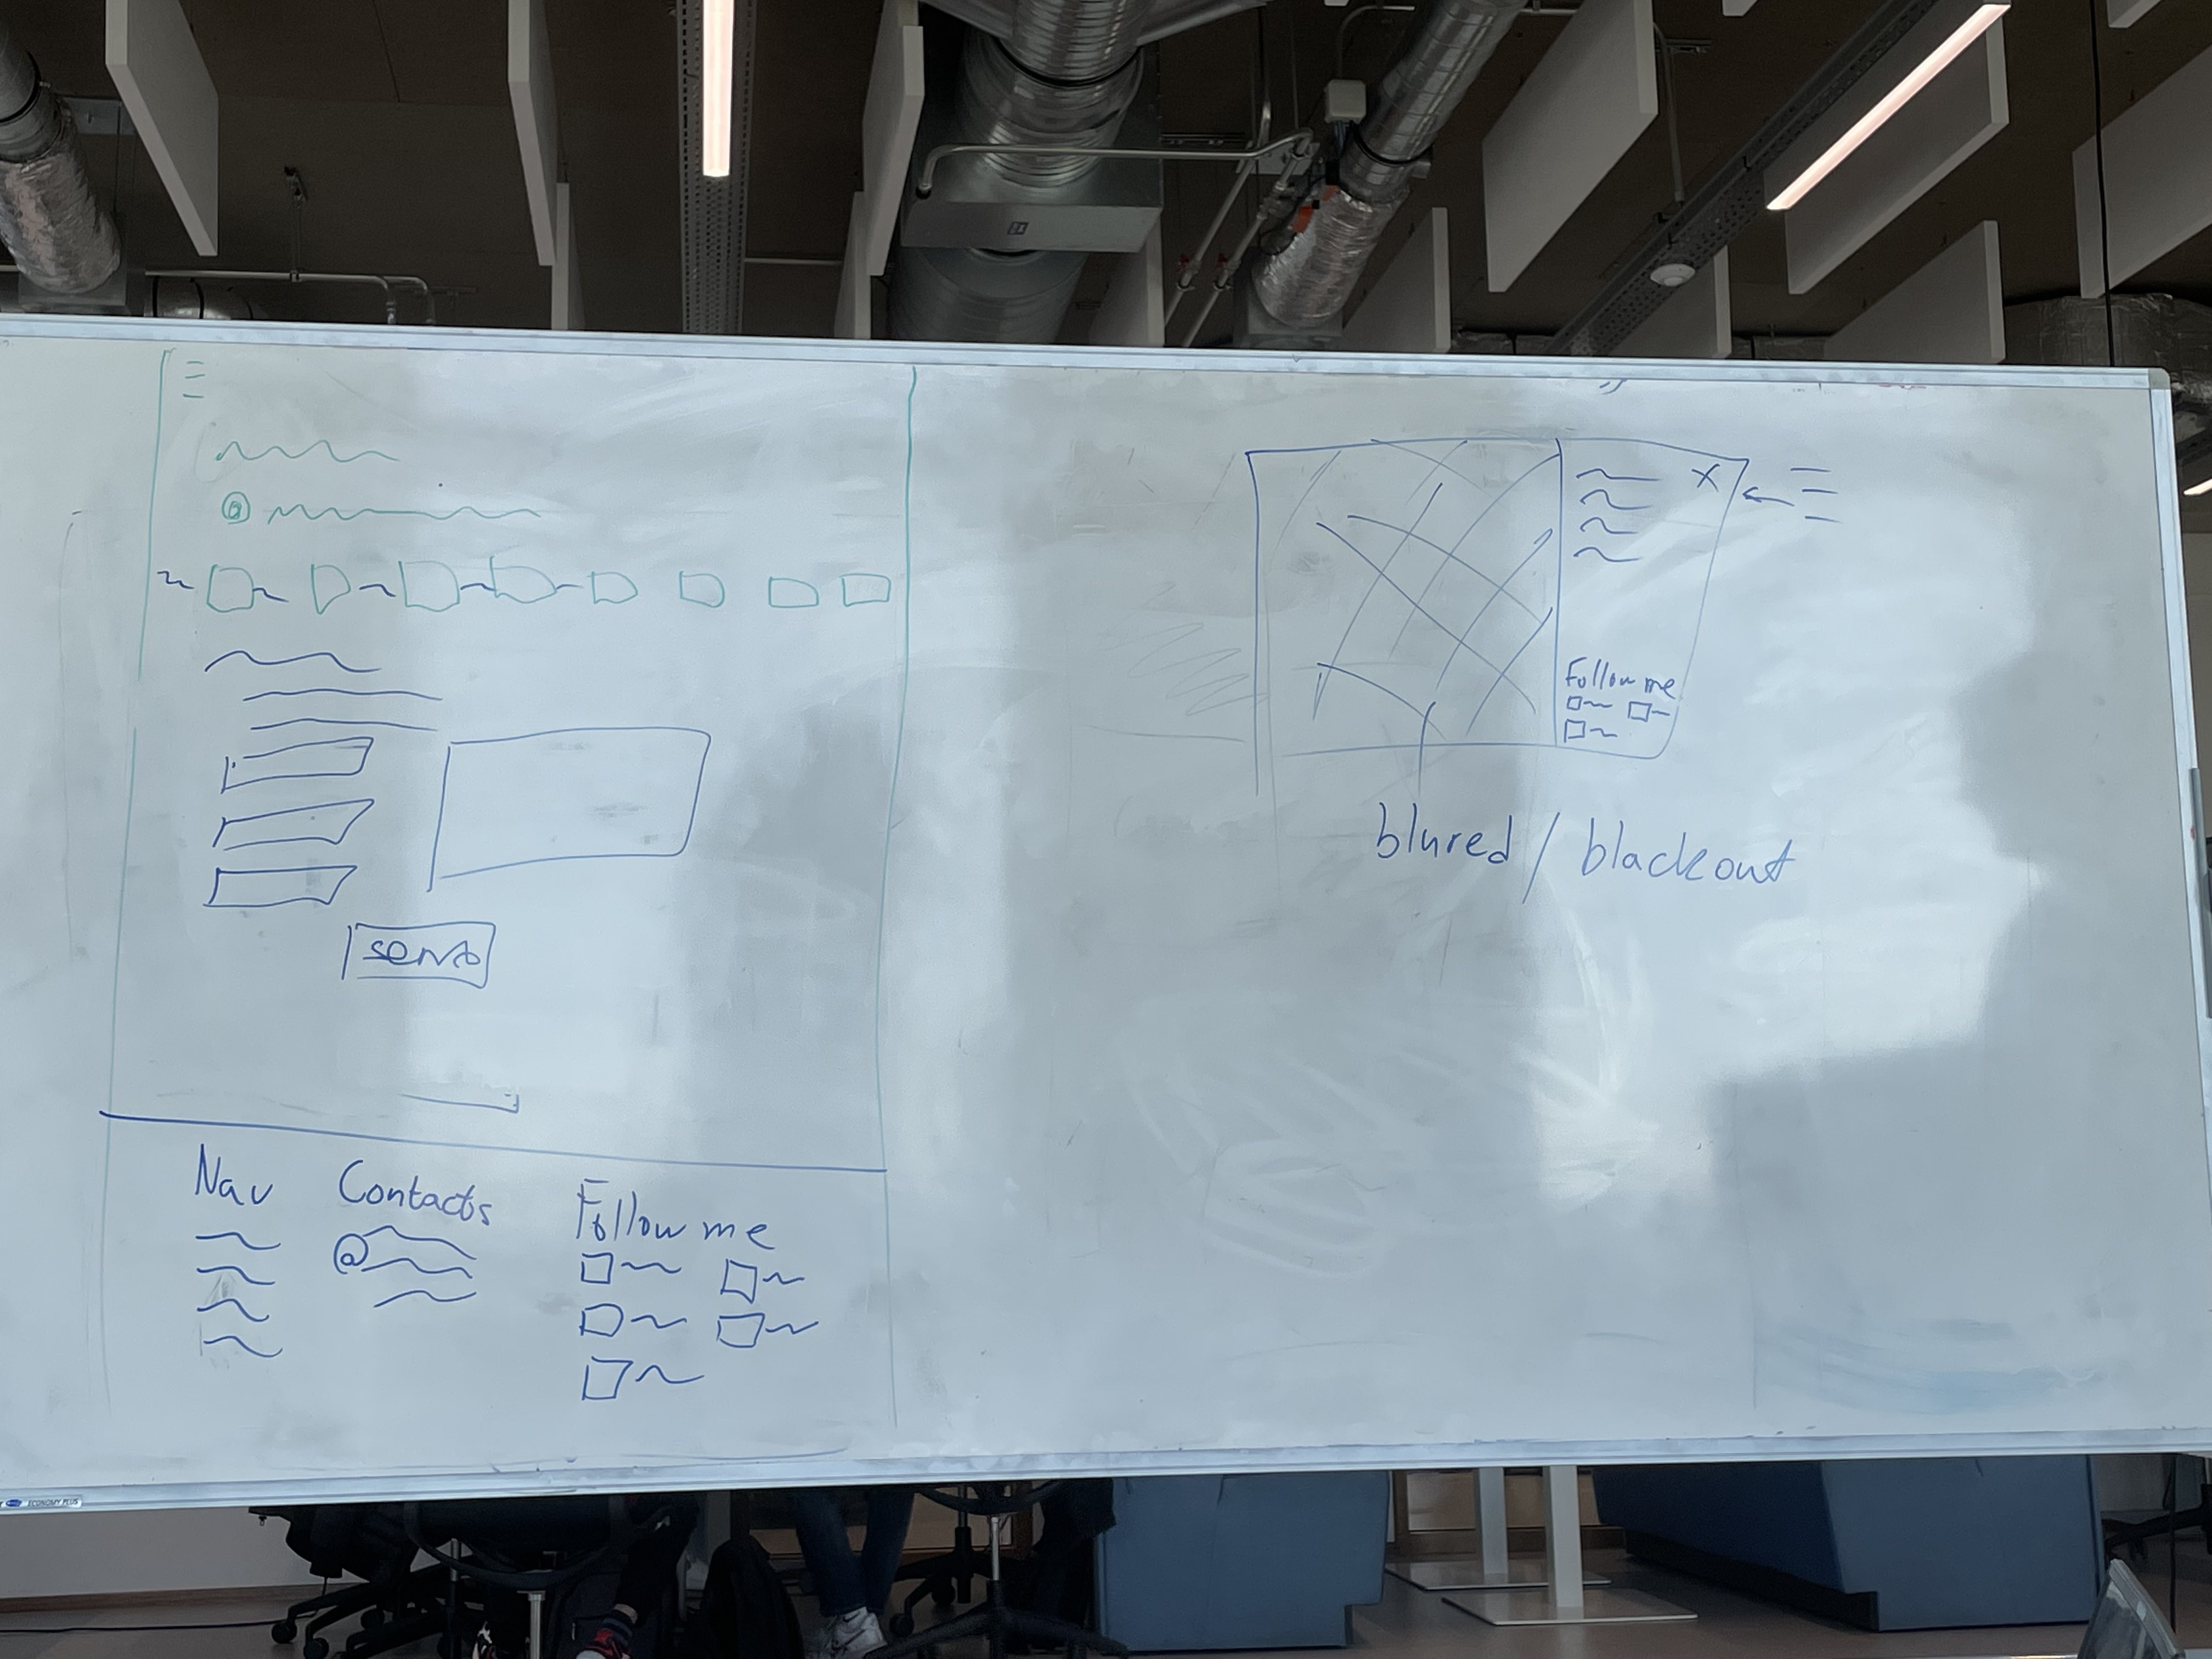 @
send
Nav
Contacts
Follow me
@
X
Follow me
blured / blackout
ECONOMY PLUS